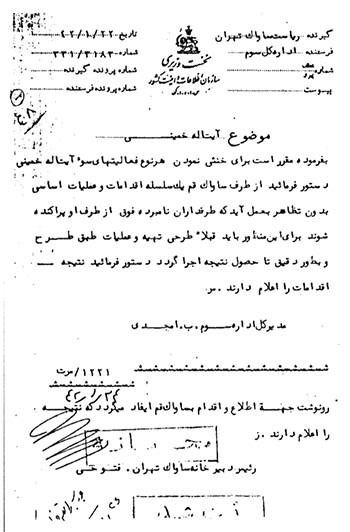 گیرنده ریاست ساواک تهران
فرستنده اداره کل سوم
شماره
پیوست
نخست وزیری
سازمان اطلاعات و امنیت کشور
س.ا.و.ا.ک
تاریخ ۴۲/۱/۲۲
شماره ۳۳۱/۳۱۸۳
شماره پرونده گیرنده
شماره پرونده فرستنده
موضوع آیت اله خمینی
بفرموده مقرر است برای خنثی نمودن هرنوع فعالیتهای سوء آیت اله خمینی
دستور فرمائید از طرف ساواک قم یک سلسله اقدامات و عملیات اساسی
بدون تظاهر بعمل آید که طرفداران نامبرده فوق از طرف او پراکنده
شوند برای این منظور باید قبلا طرحی تهیه و عملیات طبق طرح
و بطور دقیق تا حصول نتیجه اجرا گردد دستور فرمائید نتیجه
اقدامات را اعلام دارند. س
مدیر کل اداره سوم. ب. امجدی
۱۲۲۱/س ت
رونوشت جهة اطلاع و اقدام بساواک قم ایفاد میگردد که نتیجه
را اعلام دارند. ز
رئیس دبیرخانه ساواک تهران. فتوحی